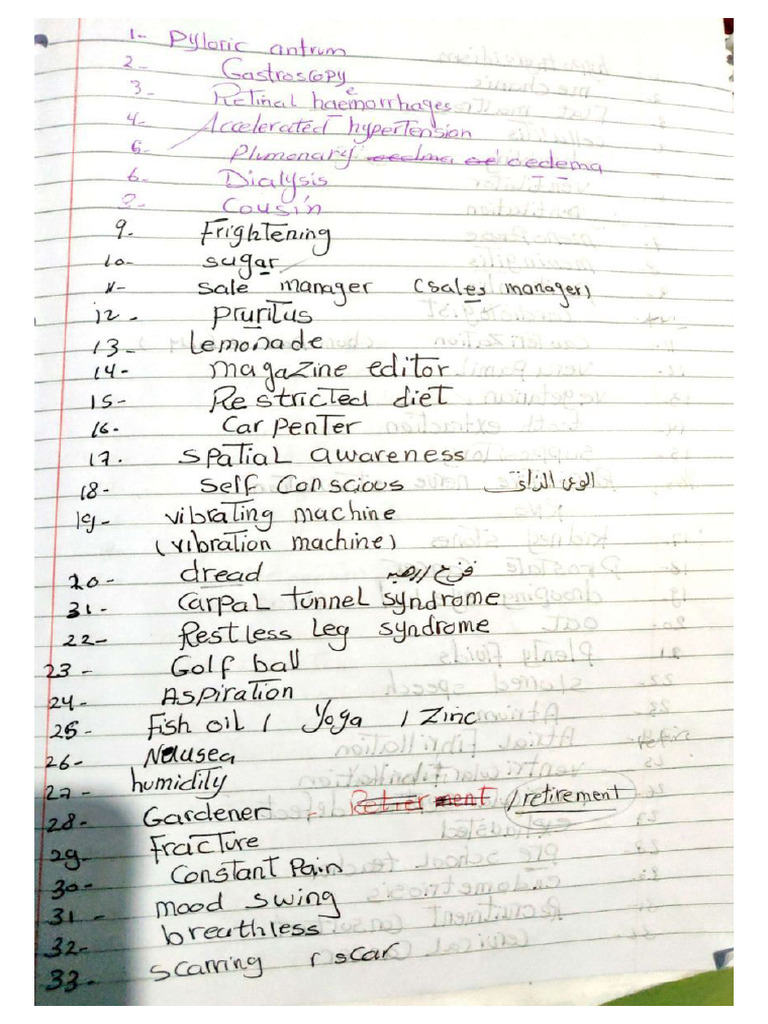 1- Pyloric antrum
2- Gastroscopy
3- Retinal haemorrhages
4- Accelerated hypertension
5- Plumonary oedema
6- Dialysis
8- Cousin
9- Frightening
10- sugar
11- sale manager (sales manager)
12- Pruritus
13- Lemonade
14- magazine editor
15- Restricted diet
16- Carpenter
17- spatial awareness
18- self conscious الوعي الذاتي
19- vibrating machine
(vibration machine)
20- dread
31- carpal tunnel syndrome
22- Restless Leg syndrome
23- Golf ball
24- Aspiration
25- Fish oil / Yoga / Zinc
26- Nausea
27- humidity
28- Gardener - Retierment / retirement
29- Fracture
30- Constant Pain
31- mood swing
32- breathless
33- scarring / scar